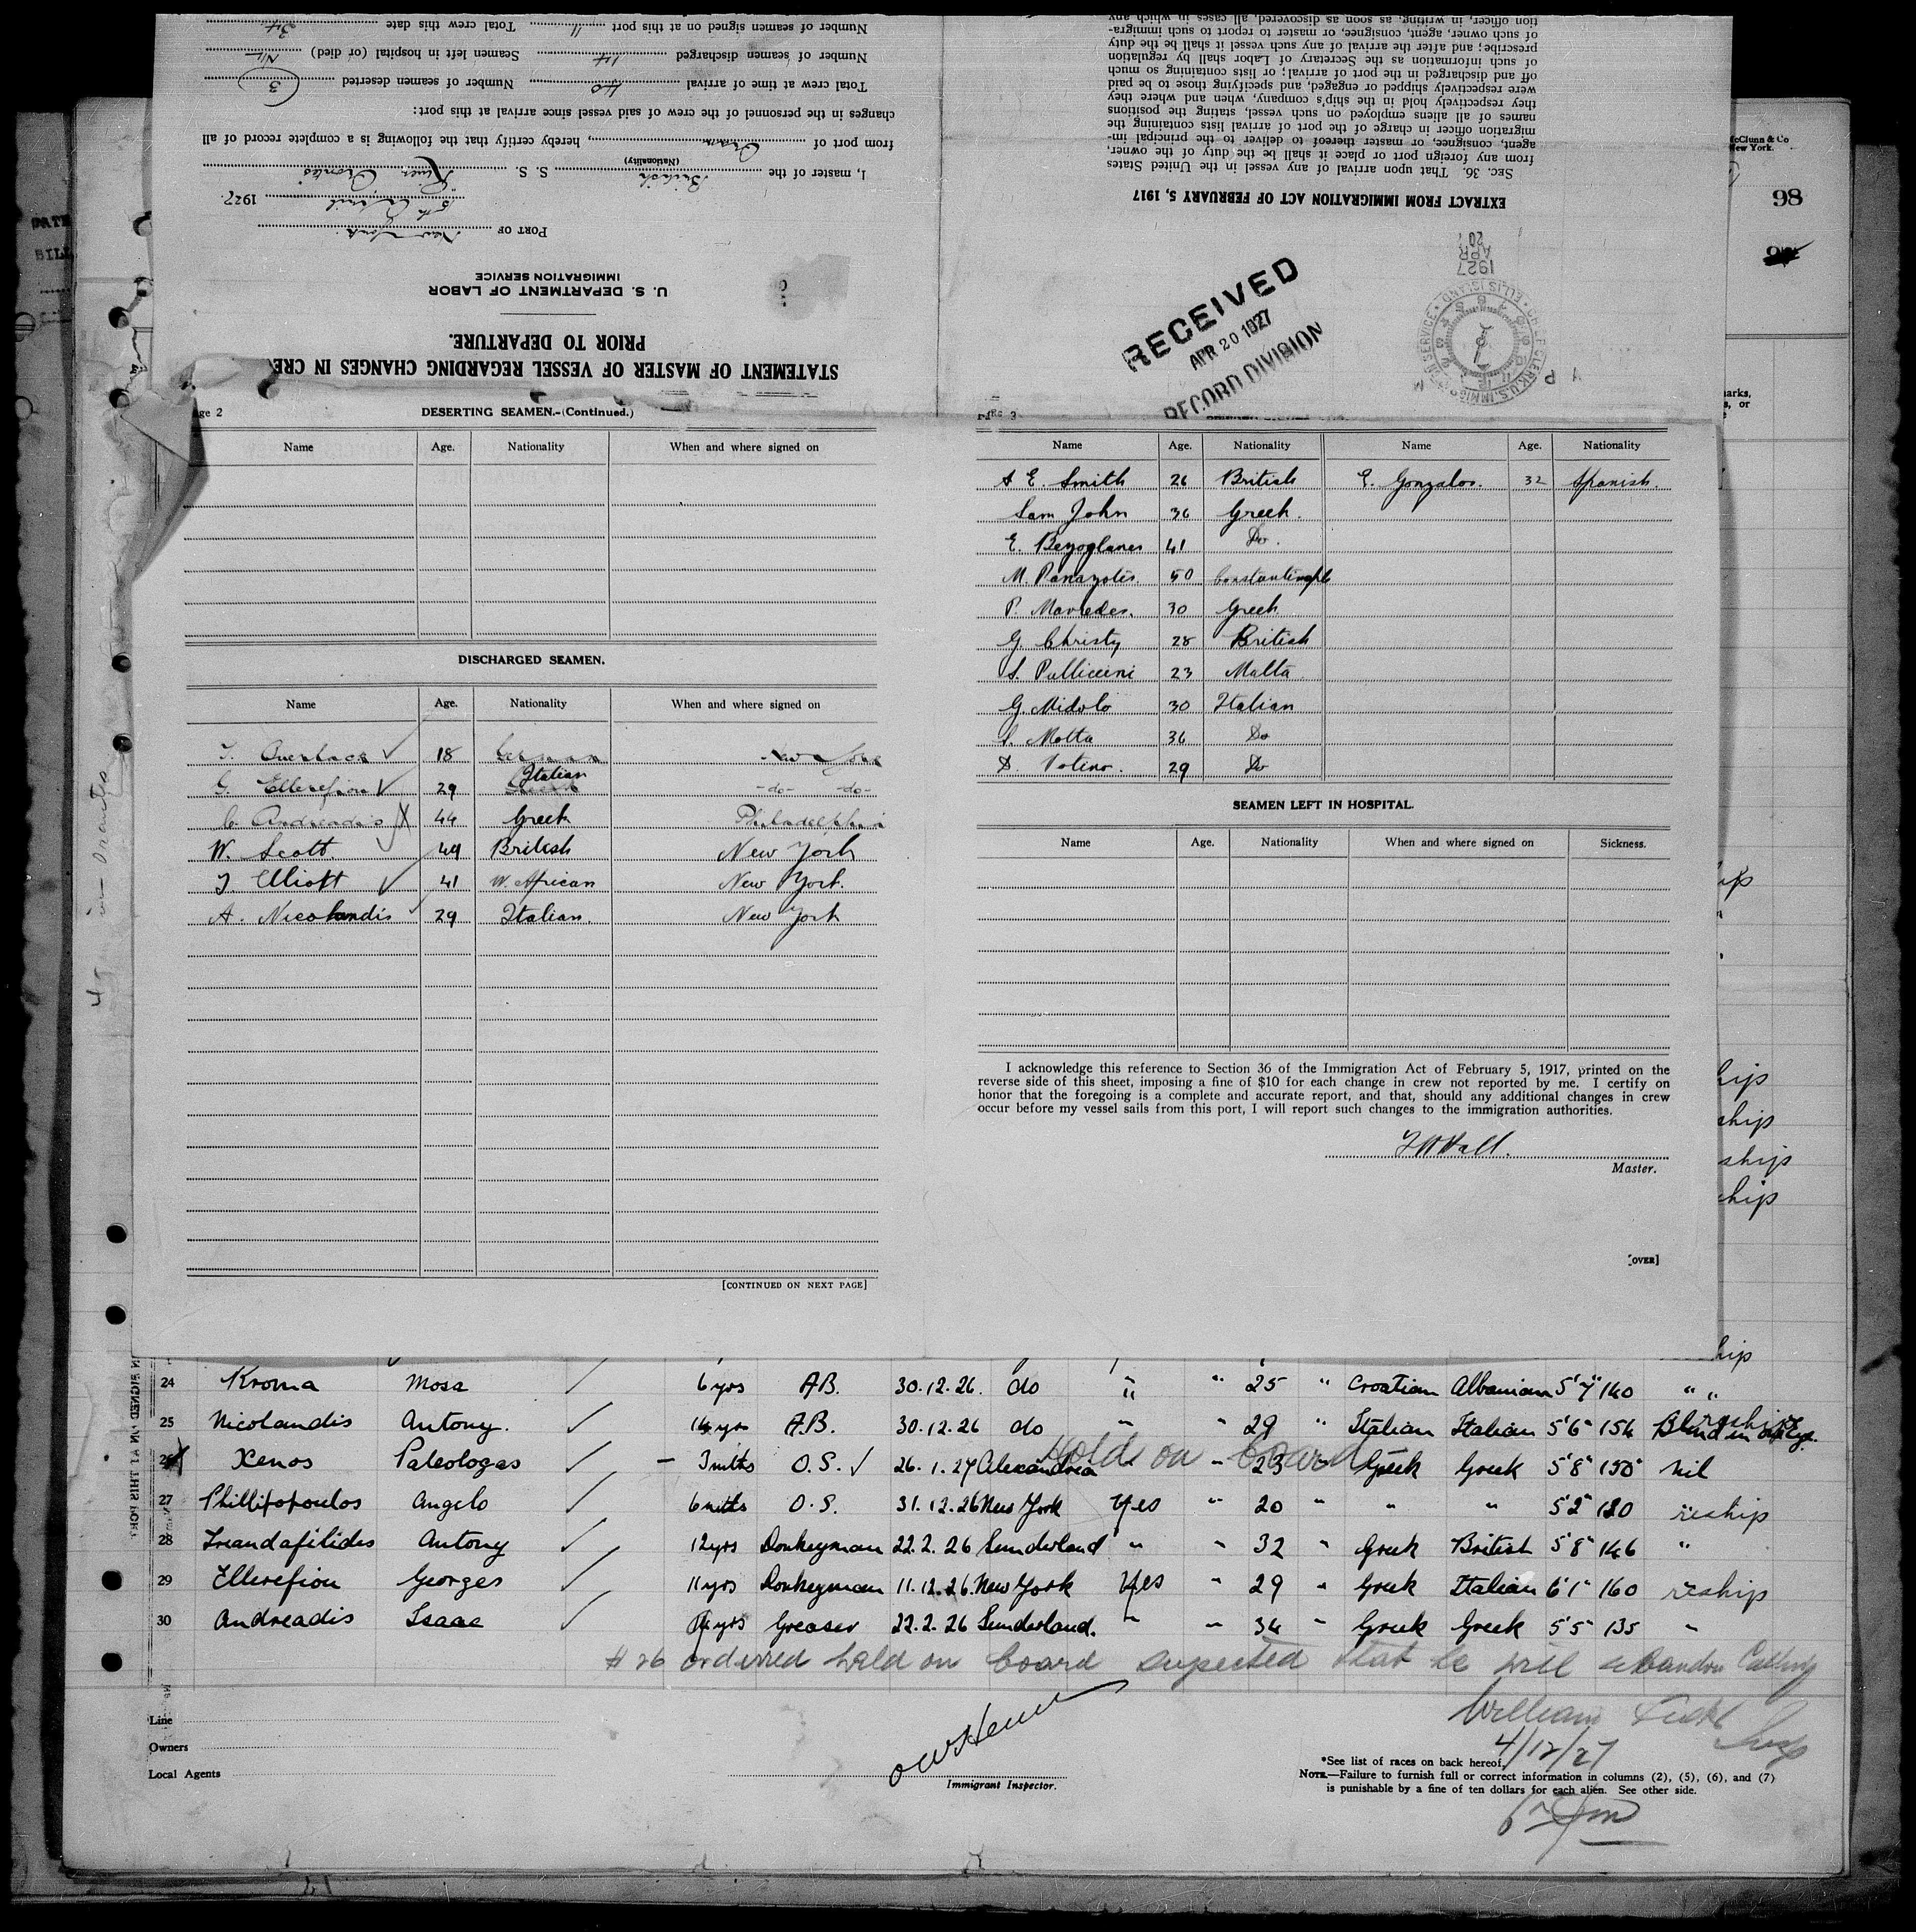 Number of seamen signed on at this port 11 Total crew this date 34
Number of seamen discharged 14 Seamen left in hospital (or died) NIL
Total crew at time of arrival 40 Number of seamen deserted 3
changes in the personnel of the crew of said vessel since arrival at this port:
from port of , hereby certify that the following is a complete record of all
I, master of the British S. S. River Orontes
(Nationality)
April 1927
PORT OF New York.
U. S. DEPARTMENT OF LABOR
IMMIGRATION SERVICE
STATEMENT OF MASTER OF VESSEL REGARDING CHANGES IN CREW
PRIOR TO DEPARTURE.
EXTRACT FROM IMMIGRATION ACT OF FEBRUARY 5, 1917
SEC. 36. That upon arrival of any vessel in the United States
from any foreign port or place it shall be the duty of the owner,
agent, consignee, or master thereof to deliver to the principal im-
migration officer in charge of the port of arrival lists containing the
names of all aliens employed on such vessel, stating the positions
they respectively hold in the ship's company, when and where they
were respectively shipped or engaged, and specifying those to be paid
off and discharged in the port of arrival; or lists containing so much
of such information as the Secretary of Labor shall by regulation
prescribe; and after the arrival of any such vessel it shall be the duty
of such owner, agent, consignee, or master to report to such immigra-
tion officer, in writing, as soon as discovered, all cases in which any
RECEIVED
APR 20 1927
RECORD DIVISION
1927
APR
20
CHIEF CLERK, U.S. IMMIGRATION SERVICE • ELLIS ISLAND
McClunn & Co
New York.
98
DATE
ge 2 DESERTING SEAMEN.-(Continued.)
Name Age. Nationality When and where signed on
DISCHARGED SEAMEN.
Name Age. Nationality When and where signed on
Auerbach 18 German New York
Italian
G. Ellerefiou 29 Greek -do- -do-
Andreadis 44 Greek Philadelphia
W. Scott. 49 British New York
J Elliott 41 W. African New York.
A. Nicolandis 29 Italian. New York
[CONTINUED ON NEXT PAGE]
Name Age. Nationality Name Age. Nationality
A E. Smith 26 British E. Gonzalos. 32 Spanish.
Sam John 36 Greek.
E. Beyoglanes 41 Do.
M. Panayotis. 50 Constantinople
P. Mavredes. 30 Greek
G. Christy 28 British
S. Pulliccini 23 Malta
G. Midolo 30 Italian
S. Motta 36 Do
D. Votino. 29 Do
SEAMEN LEFT IN HOSPITAL.
Name Age. Nationality When and where signed on Sickness.
I acknowledge this reference to Section 36 of the Immigration Act of February 5, 1917, printed on the
reverse side of this sheet, imposing a fine of $10 for each change in crew not reported by me. I certify on
honor that the foregoing is a complete and accurate report, and that, should any additional changes in crew
occur before my vessel sails from this port, I will report such changes to the immigration authorities.
Hall.
Master.
[OVER]
hip
ship
ship
ship
hip
24 Kroma Mosa 6 yrs A.B. 30.12.26. do " " 25 " Croatian Albanian 5'7" 160 " "
25 Nicolandis Antony. 14 yrs A.B. 30.12.26 do " " 29 " Italian Italian 5'6" 154 Blind in eye.
Hold on board
26 Xenos Paleologas 3 mths O.S. 26.1.27 Alexandria " 23 " Greek Greek 5'8" 150 nil
27 Phillipopoulos Angelo 6 mths O.S. 31.12.26 New York Yes " 20 " " " 5'2" 130 reship
28 Treandafilides Antony 12 yrs Donkeyman 22.2.26 Sunderland " " 32 " Greek British 5'8" 146 "
29 Ellerefiou Georges 11 yrs Donkeyman 11.12.26. New York Yes " 29 " Greek Italian 6'1" 160 reship
30 Andreadis Isaac yrs Greaser 22.2.26 Sunderland. " " 34 " Greek Greek 5'5" 135 "
# 26 ordered held on board suspected that he will abandon Calling
William
4/12/27
Line
Owners
Local Agents
Immigrant Inspector.
*See list of races on back hereof.
NOTE.—Failure to furnish full or correct information in columns (2), (5), (6), and (7)
is punishable by a fine of ten dollars for each alien. See other side.